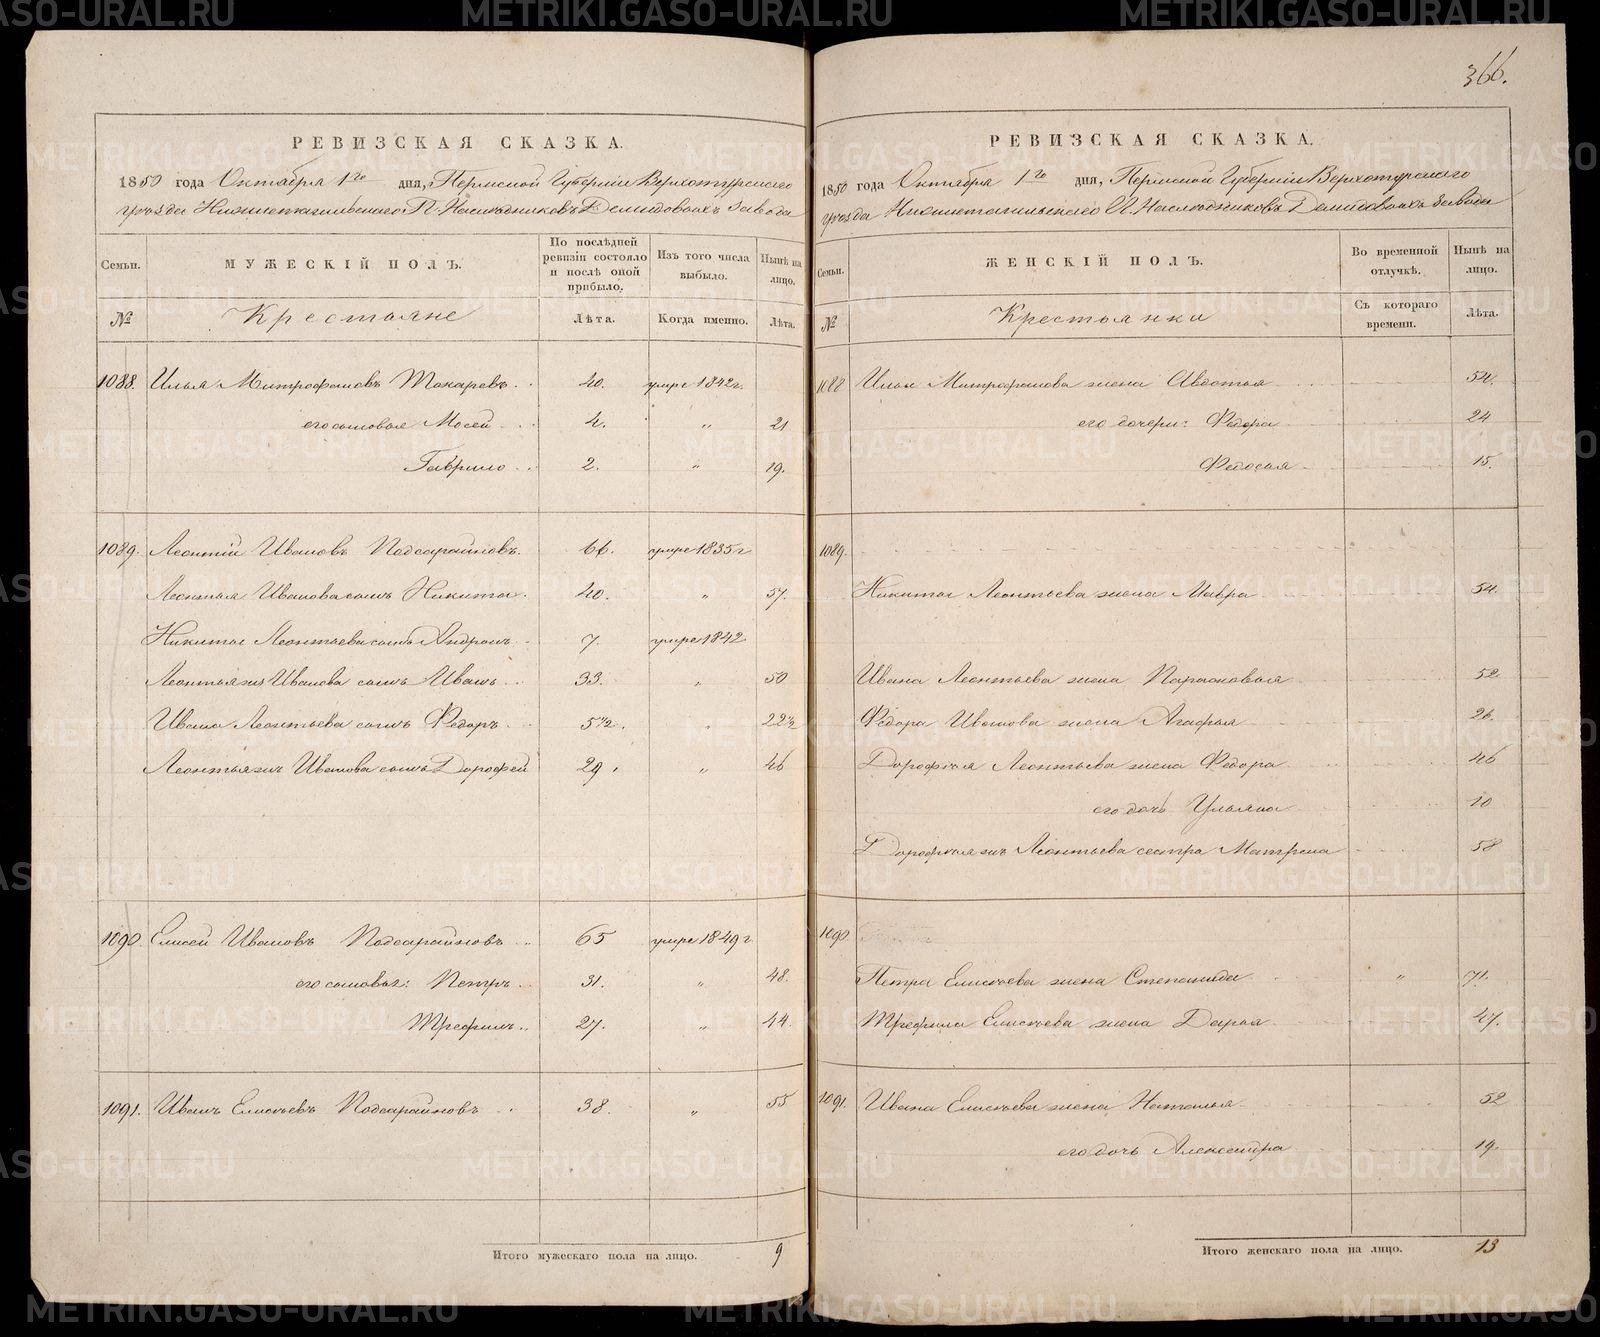 366.
РЕВИЗСКАЯ СКАЗКА.
1850 года Октября 1го дня, Пермской Губернiи Верхотурского
уѣзда Нижнетагильского П. Наслѣдниковъ Демидовыхъ завода
Семьи. МУЖЕСКІЙ ПОЛЪ. По послѣдней ревизіи состояло и послѣ оной прибыло. Изъ того числа выбыло. Нынѣ на лицо.
№ Крестьяне Лѣта. Когда именно. Лѣта.
1088. Илья Митрофановъ Токаревъ 40. умре 1842 г.
его сыновья Мосей 4. " 21
Гаврило 2. " 19.
1089. Леонтiй Ивановъ Подсарайновъ. 66. умре 1835 г
Леонтья Иванова сынъ Никита. 40. " 57.
Никиты Леонтьева сынъ Андронъ 7. умре 1842
Леонтья же Иванова сынъ Иванъ 33. " 50
Ивана Леонтьева сынъ Федоръ 5 1/2. " 22 1/2
Леонтья жъ Иванова сынъ Дорофей 29. " 46
1090. Елисей Ивановъ Подсарайновъ 65 умре 1849 г
его сыновья: Петръ 31. " 48.
Трефилъ 27. " 44.
1091. Иванъ Елисѣевъ Подсарайновъ 38. " 55
Итого мужескаго пола на лицо. 9
РЕВИЗСКАЯ СКАЗКА.
1850 года Октября 1го дня, Пермской Губернiи Верхотурского
уѣзда Нижнетагильского П. Наслѣдниковъ Демидовыхъ завода
Семьи. ЖЕНСКІЙ ПОЛЪ. Во временной отлучкѣ. Нынѣ на лицо.
№ Крестьянки Съ котораго времени. Лѣта.
1088 Ильи Митрофанова жена Авдотья 54.
его дочери: Федора 24
Федосья 15.
1089.
Никиты Леонтьева жена Мавра 54.
Ивана Леонтьева жена Парасковья 52
Федора Иванова жена Агафья 26.
Дорофѣя Леонтьева жена Федора 46
его дочь Ульяна 10
Дорофѣя жъ Леонтьева сестра Матрена 58
1090
Петра Елисѣева жена Степанида " 71.
Трефила Елисѣева жена Дарья 47.
1091. Ивана Елисѣева жена Наталья 52
его дочь Александра 19.
Итого женскаго пола на лицо. 13
METRIKI.GASO-URAL.RU